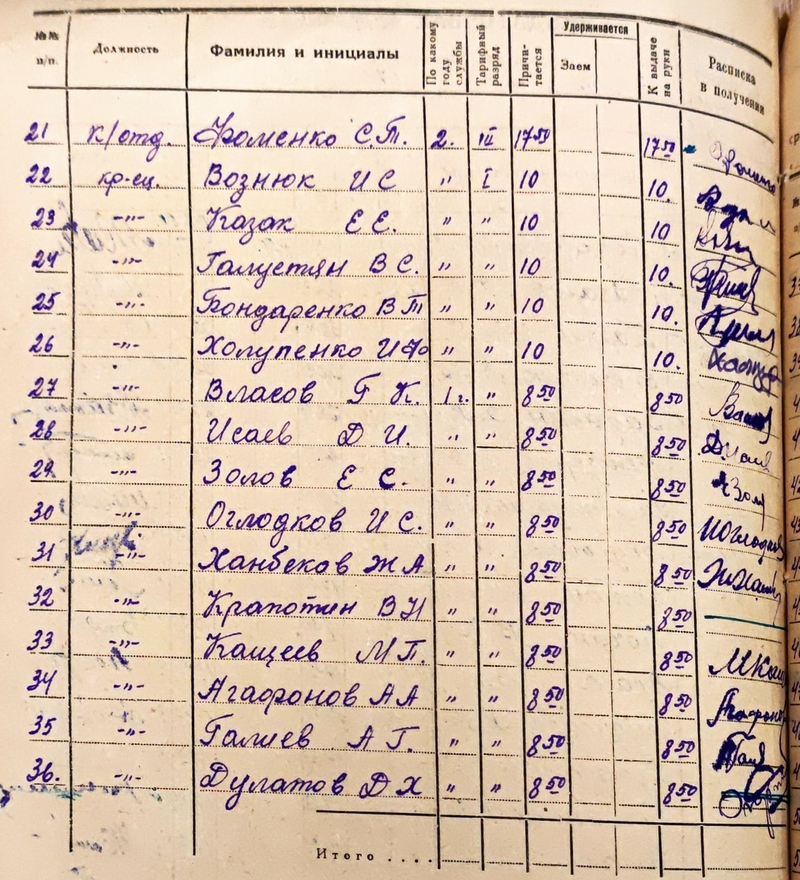 №№ п/п. Должность Фамилия и инициалы По какому году службы Тарифный разряд Причитается Удерживается Заем К выдаче на руки Расписка в получении
21 к/отд. Фоменко С.Т. 2. III 17 50 17 50
22 кр-ец. Вознюк И С " I 10 10.
23 -"- Казак Е Е. " " 10 10
24 -"- Галустян В С. " " 10 10.
25 -"- Бондаренко В Т " " 10 10.
26 -"- Холупенко И Ф " " 10 10.
27 -"- Власов Г К. 1 г. " 8 50 8 50
28 -"- Исаев Д И. " " 8 50 8 50
29 -"- Золов Е С. " " 8 50 8 50
30 -"- Оглодков И С. " " 8 50 8 50
31 -"- Ханбеков Ж А " " 8 50 8 50
32 -"- Крапотин В Н " " 8 50 8 50
33 -"- Кащеев М П. " " 8 50 8 50
34 -"- Агафонов А А " " 8 50 8 50
35 -"- Галиев А Г. " " 8 50 8 50
36. -"- Дулатов Д Х " " 8 50 8 50
Итого ....